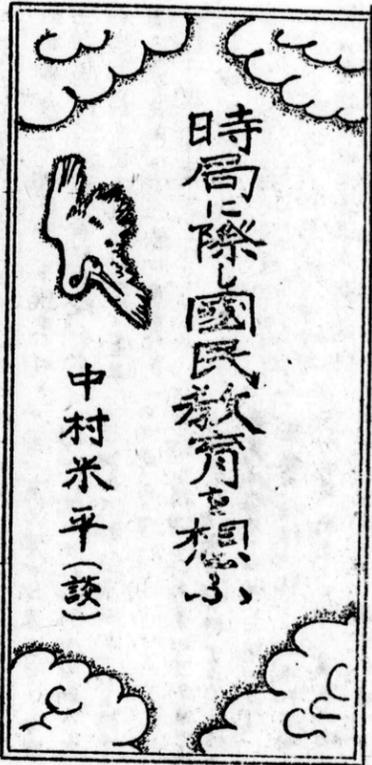 時局に際し國民敎育を想ふ
中村米平(談)